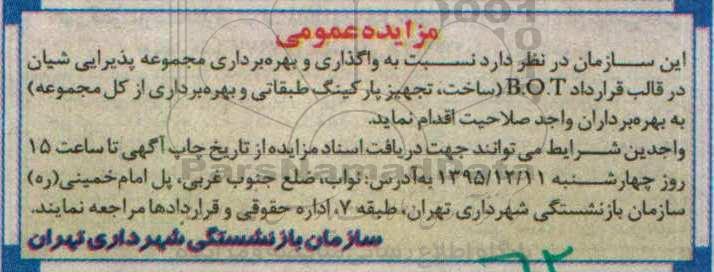 مزایده عمومی
این سازمان در نظر دارد نسبت به واگذاری و بهره‌برداری مجموعه پذیرایی شیان
در قالب قرارداد B.O.T (ساخت، تجهیز پارکینگ طبقاتی و بهره‌برداری از کل مجموعه)
به بهره‌برداران واجد صلاحیت اقدام نماید.
واجدین شرایط می توانند جهت دریافت اسناد مزایده از تاریخ چاپ آگهی تا ساعت ۱۵
روز چهارشنبه ۱۳۹۵/۱۲/۱۱ به‌آدرس: نواب، ضلع جنوب غربی، پل امام‌خمینی(ره)
سازمان بازنشستگی شهرداری تهران، طبقه ۷، اداره حقوقی و قراردادها مراجعه نمایند.
سازمان بازنشستگی شهرداری تهران
ParsNamadData
۶۲